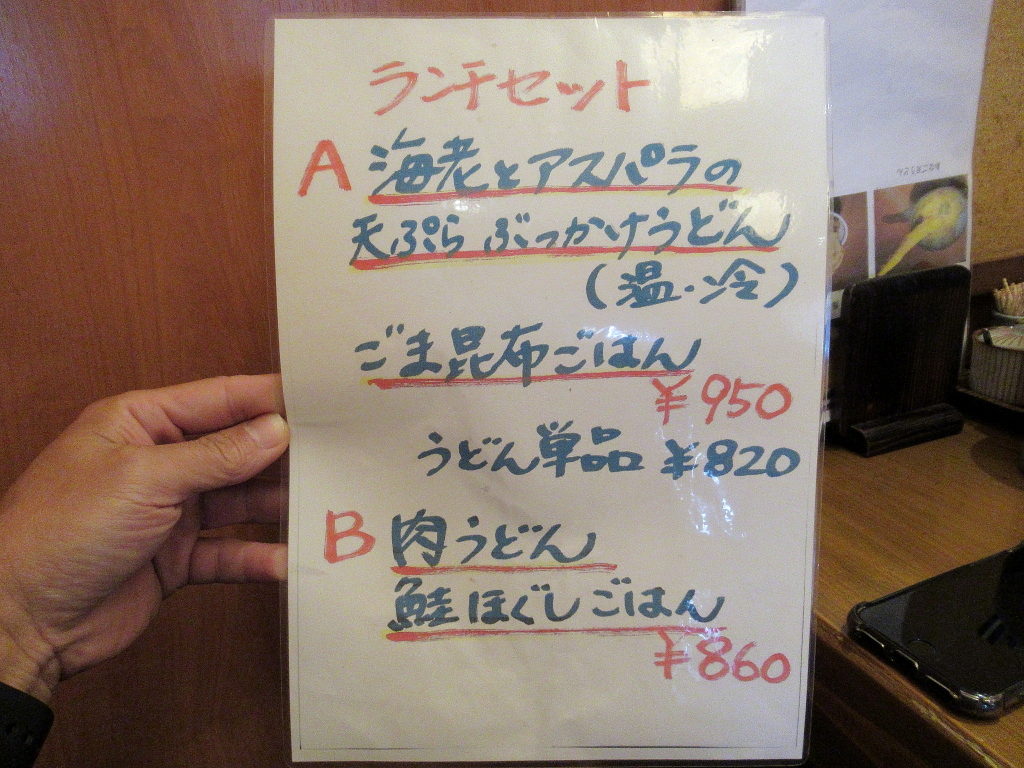 ランチセット
A 海老とアスパラの
天ぷら ぶっかけうどん
(温・冷)
ごま昆布ごはん
¥950
うどん単品 ¥820
B 肉うどん
鮭ほぐしごはん
¥860